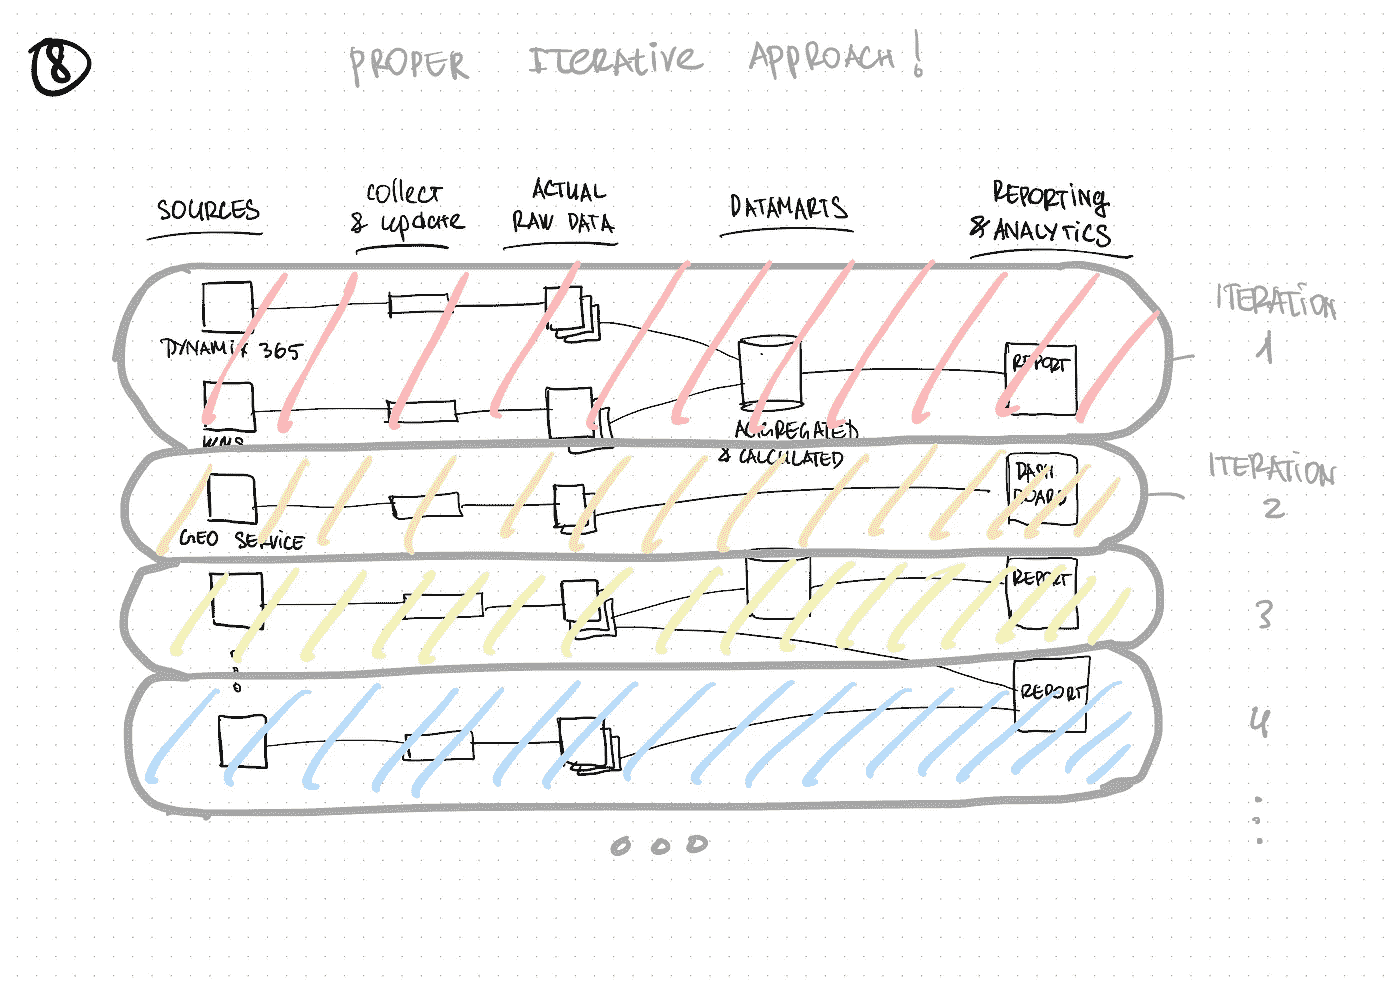 8
PROPER ITERATIVE APPROACH!
SOURCES
collect
& update
ACTUAL
RAW DATA
DATAMARTS
REPORTING
& ANALYTICS
DYNAMIX 365
WMS
AGGREGATED
& CALCULATED
REPORT
ITERATION
1
GEO SERVICE
DASH
BOARD
ITERATION
2
REPORT
3
REPORT
4